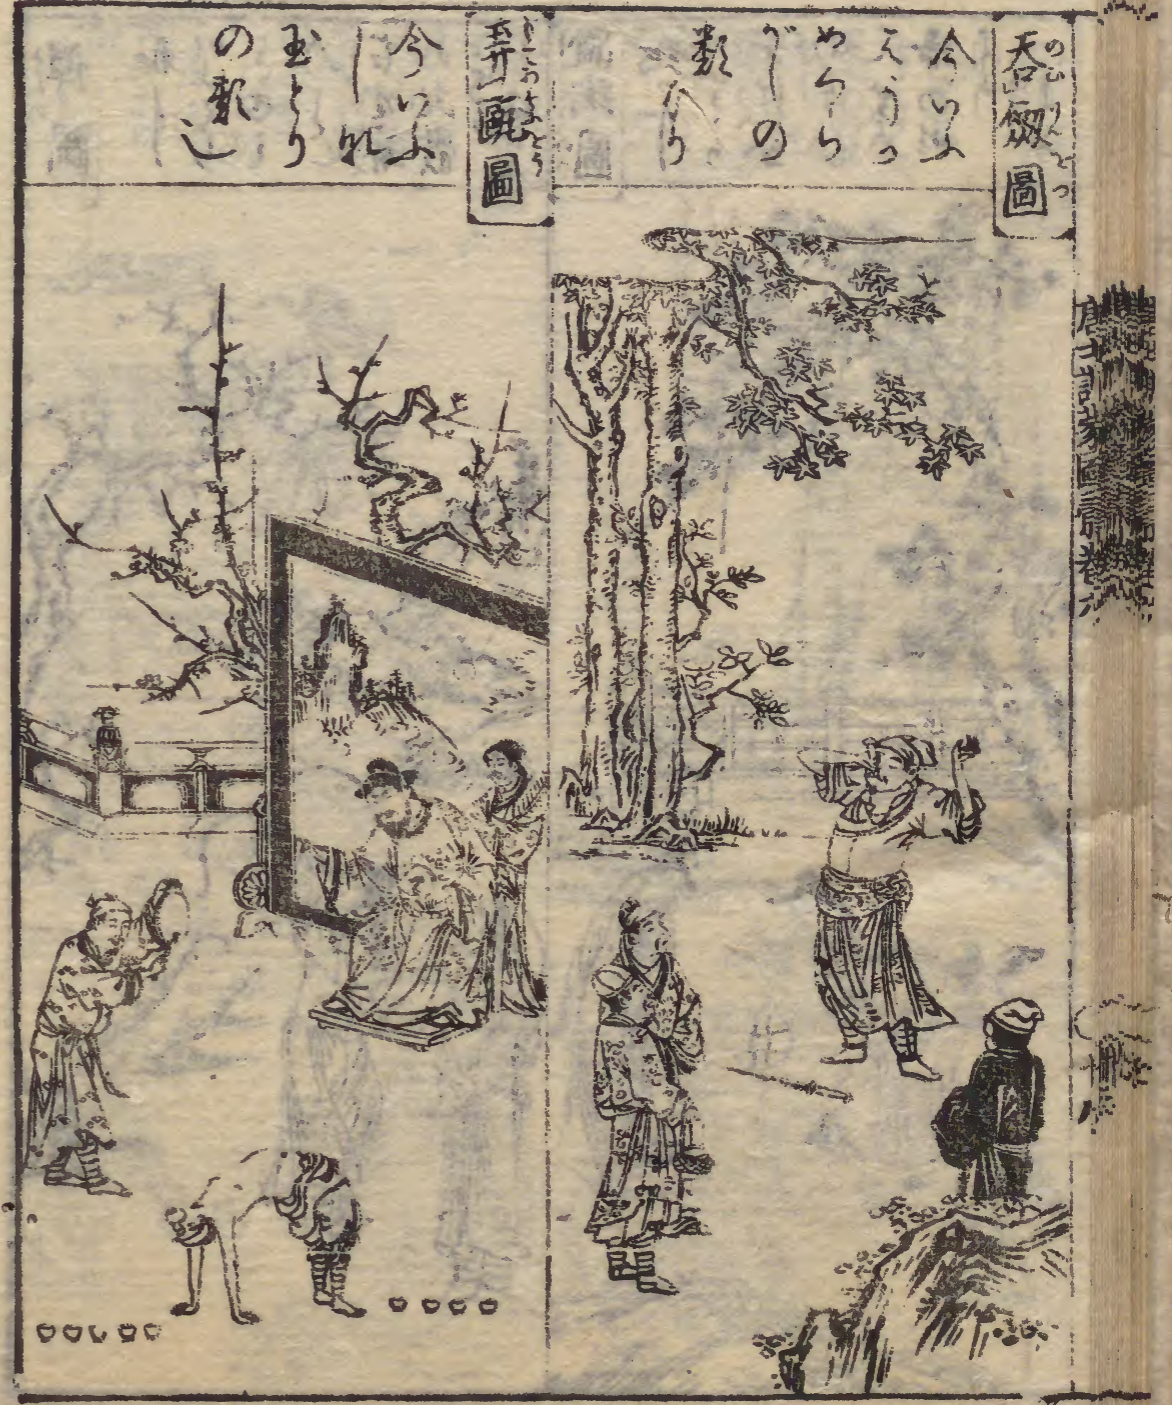 呑劔圖
今いふ
めくら
がしの
類なり
弄甌圖
今いふ
しな
玉とり
の類
也
唐土訓蒙圖彙巻六